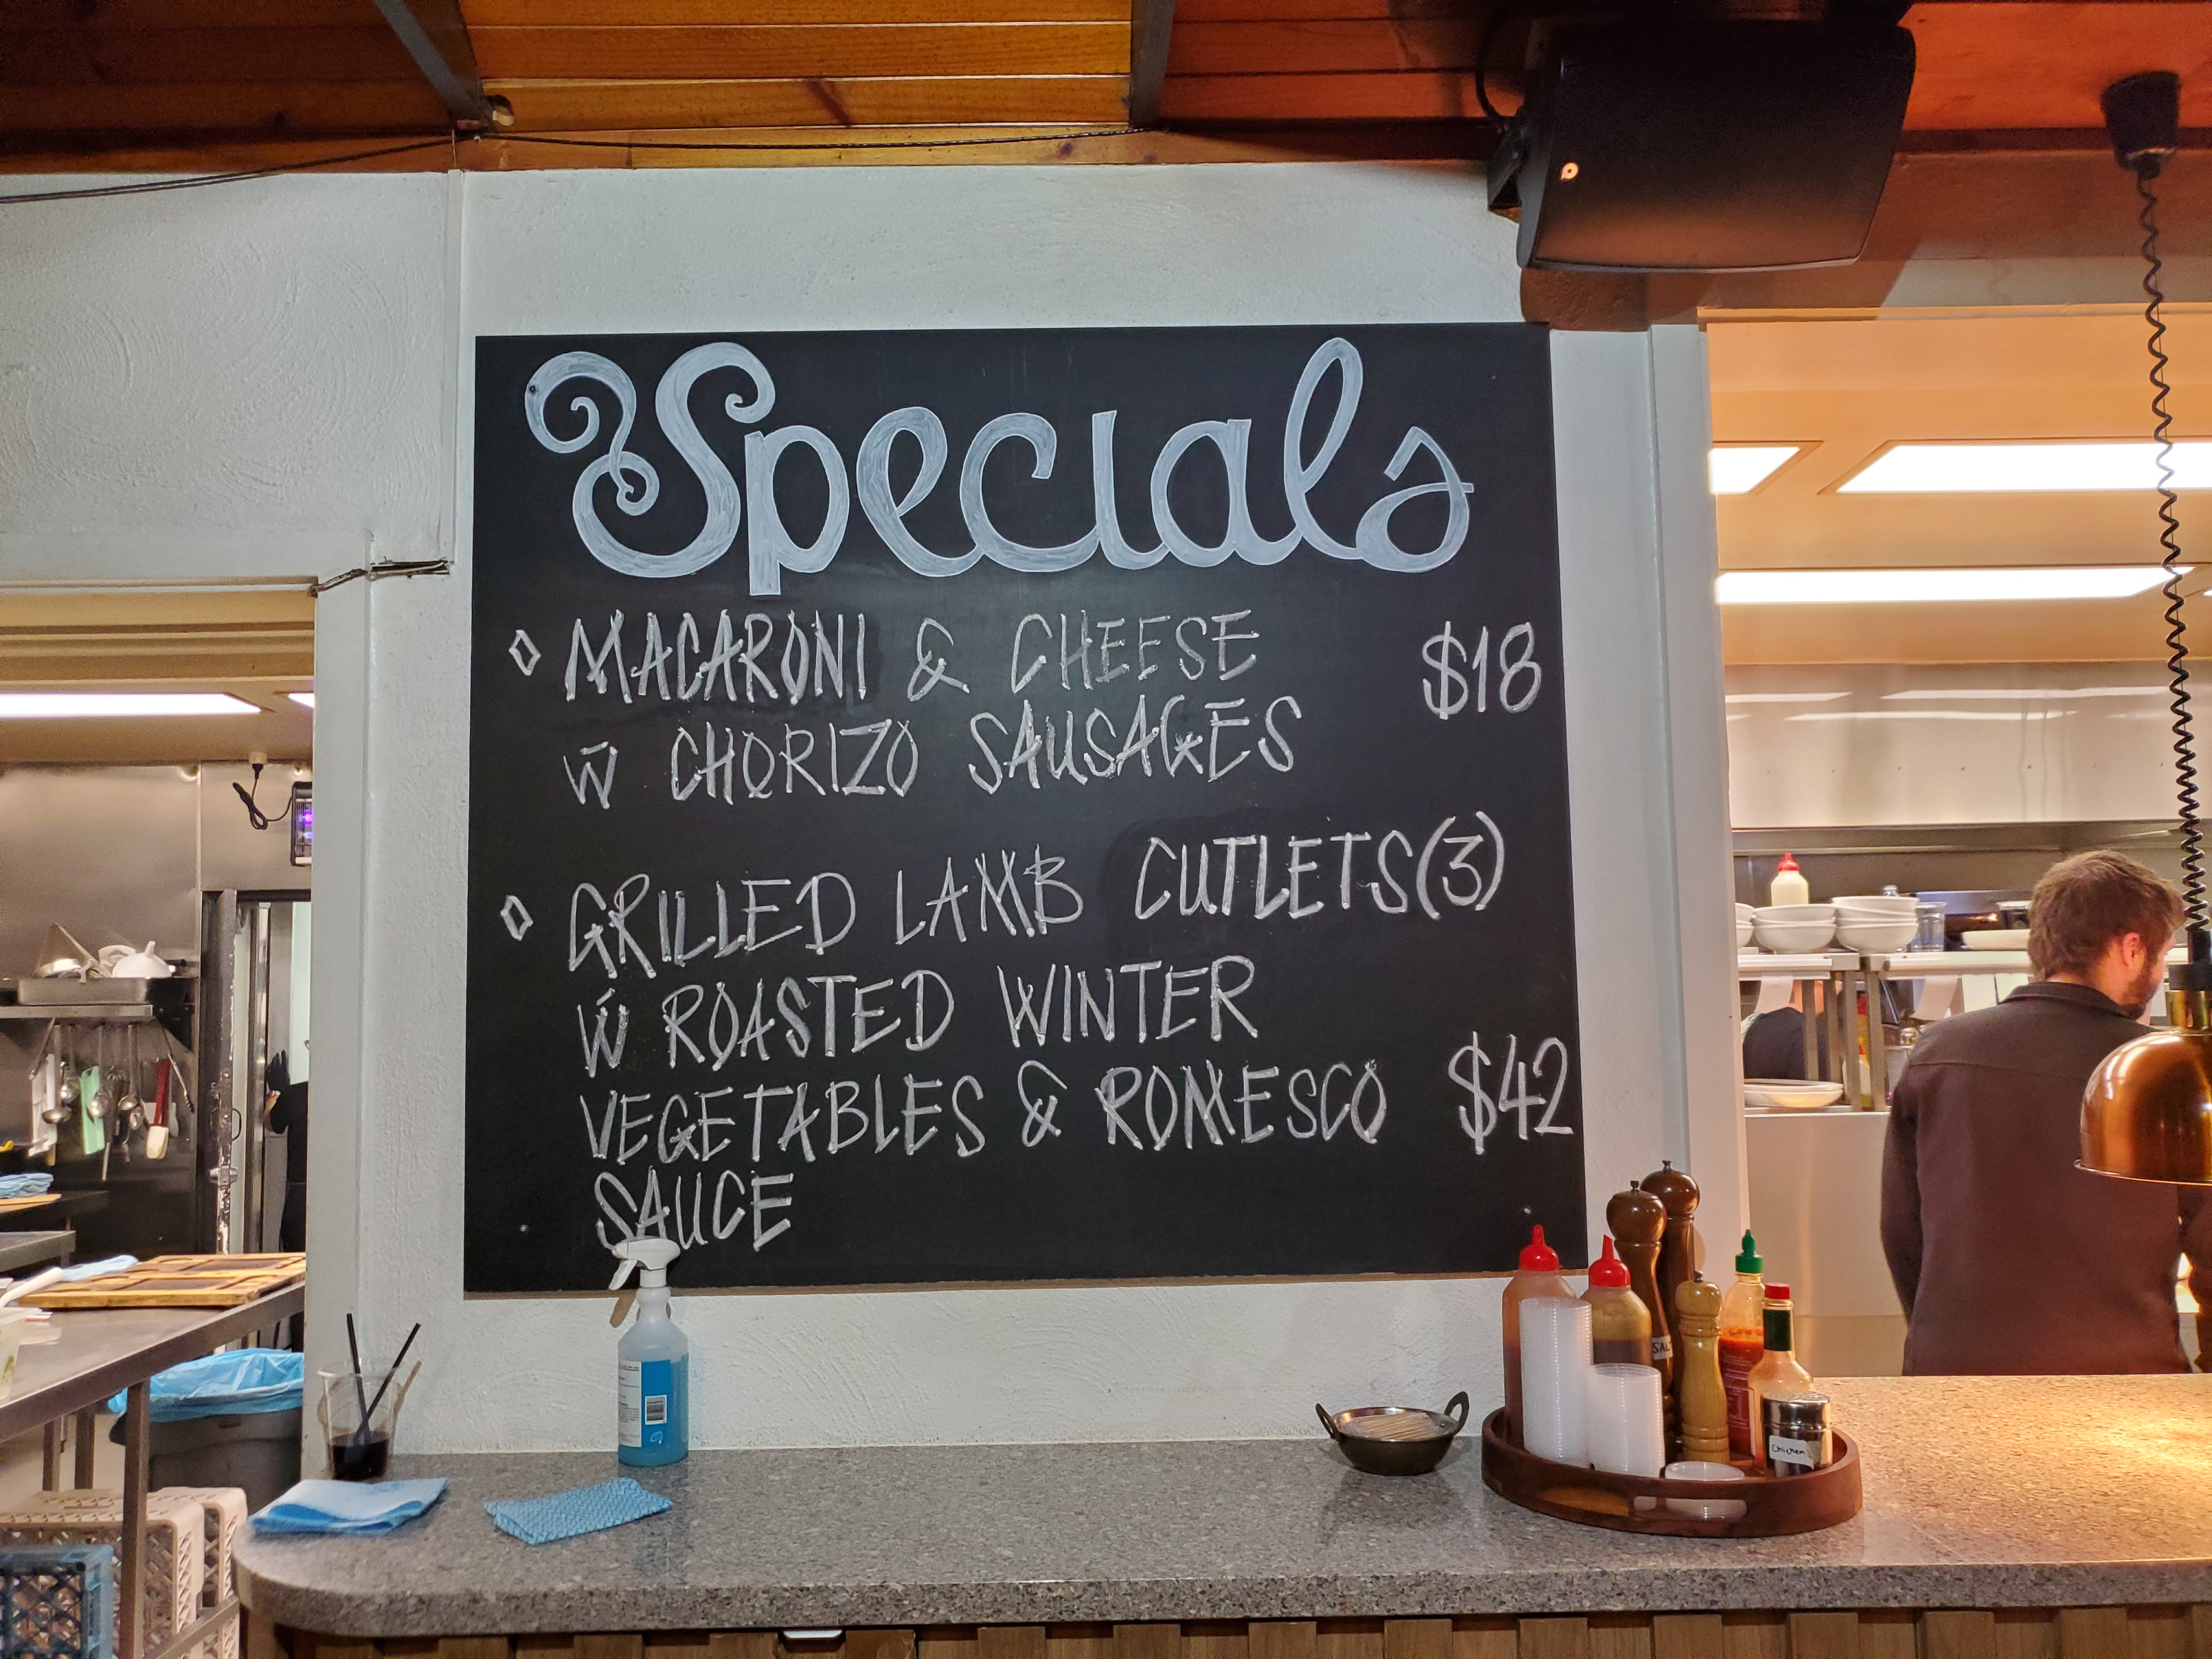 Specials
MACARONI & CHEESE $18
W̄ CHORIZO SAUSAGES
GRILLED LAMB CUTLETS(3)
W̄ ROASTED WINTER
VEGETABLES & ROMESCO $42
SAUCE
Chicken